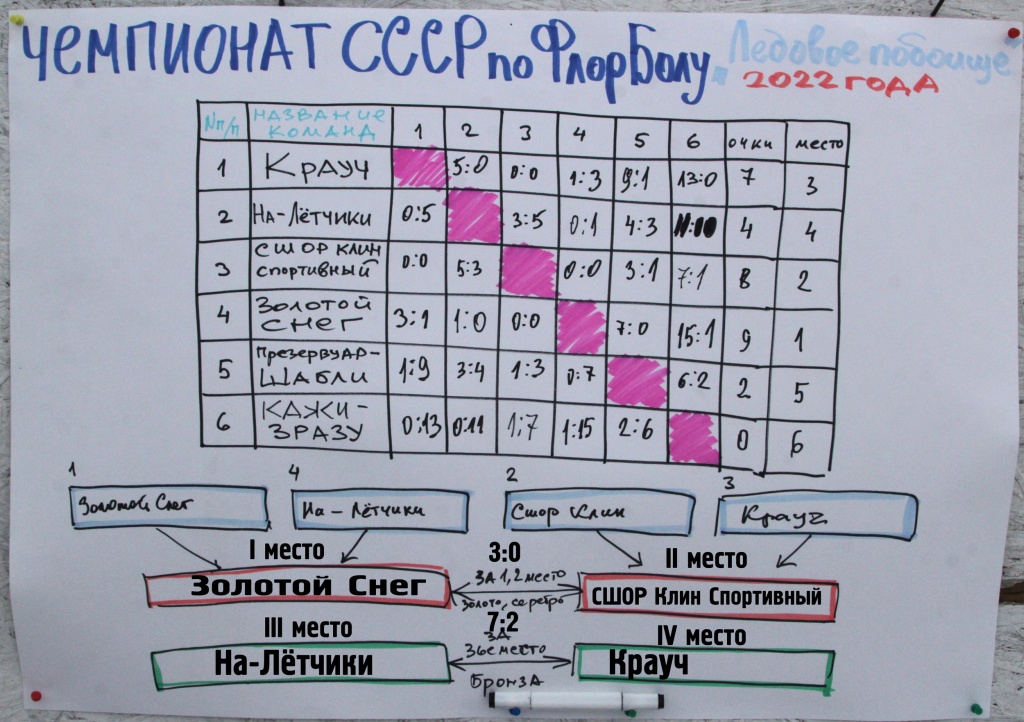 ЧЕМПИОНАТ СССР по ФлорБолу. Ледовое побоище
2022 ГОДА
№п/п НАЗВАНИЕ КОМАНД 1 2 3 4 5 6 ОЧКИ МЕСТО
1 КРАУЧ 5:0 0:0 1:3 9:1 13:0 7 3
2 НА-ЛЁТЧИКИ 0:5 3:5 0:1 4:3 4 4
3 СШОР КЛИН спортивный 0:0 5:3 0:0 3:1 7:1 8 2
4 ЗОЛОТОЙ СНЕГ 3:1 1:0 0:0 7:0 15:1 9 1
5 Презервуар-ШАБЛИ 1:9 3:4 1:3 0:7 6:2 2 5
6 КАЖИ-ЗРАЗУ 0:13 0:11 1:7 1:15 2:6 0 6
1 4 2 3
Золотой Снег На-Лётчики Сшор Клин Крауч
I место 3:0 II место
Золотой Снег ЗА 1,2 место СШОР Клин Спортивный
золото, серебро
III место 7:2 IV место
ЗА
На-Лётчики 3ье место Крауч
БРОНЗА